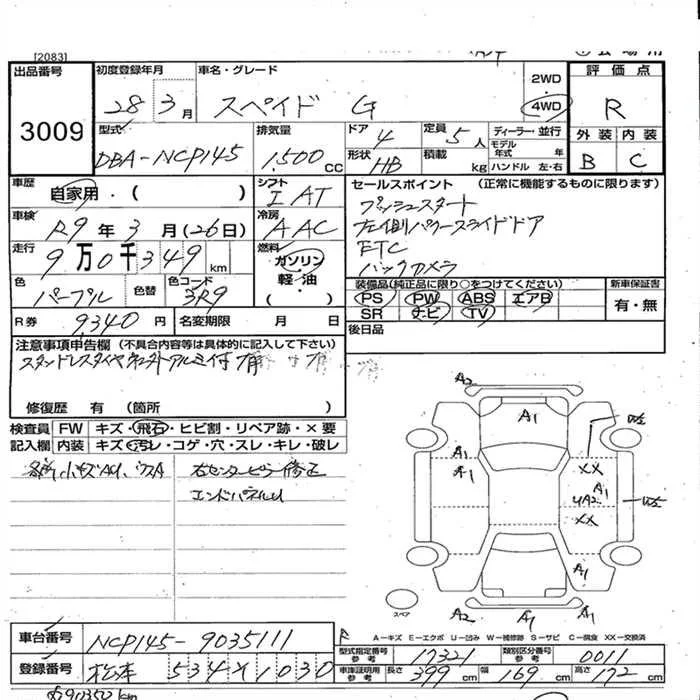 [2083]
出品番号
3009
初度登録年月
28年3月
車名・グレード
スペイド G
2WD
4WD
評価点
R
外装 内装
B C
型式
DBA-NCP145
排気量
1,500cc
ドア
4
形状
HB
定員
5人
積載
kg
ディーラー・並行
モデル年式 年
ハンドル 左・右
車歴
自家用・( )
シフト
I AT
車検
R9年3月(26日)
冷房
AAC
走行
9万0千349km
燃料
ガソリン
軽・油
( )
色
パープル
色替
色コード
3R9
R券
9,340円
名変期限 月 日
セールスポイント (正常に機能するものに限ります)
プッシュスタート
左側パワースライドドア
ETC
バックカメラ
装備品(純正品に限り○をつけてください)
PS PW ABS エアB
SR ナビ TV
新車保証書
有・無
後日品
注意事項申告欄(不具合内容等は具体的に記入して下さい)
修復歴 有 (箇所 )
検査員 FW キズ・飛石・ヒビ割・リペア跡・×要
記入欄 内装 キズ・汚レ・コゲ・穴・スレ・キレ・破レ
右センターピラー修正
エンドパネルU
A2
A1
A1
A1
XX
A1
UA2
XX
A1
A2
A1
A1
スペア
A-キズ E-エクボ U-凹み W-補修跡 S-サビ C-腐食 XX-交換済
車台番号
NCP145-9035111
登録番号
松本 534 1030
型式指定番号 参考
17321
類別区分番号 参考
0011
車庫証明用 参考
長さ 399cm 幅 169cm 高さ 172cm